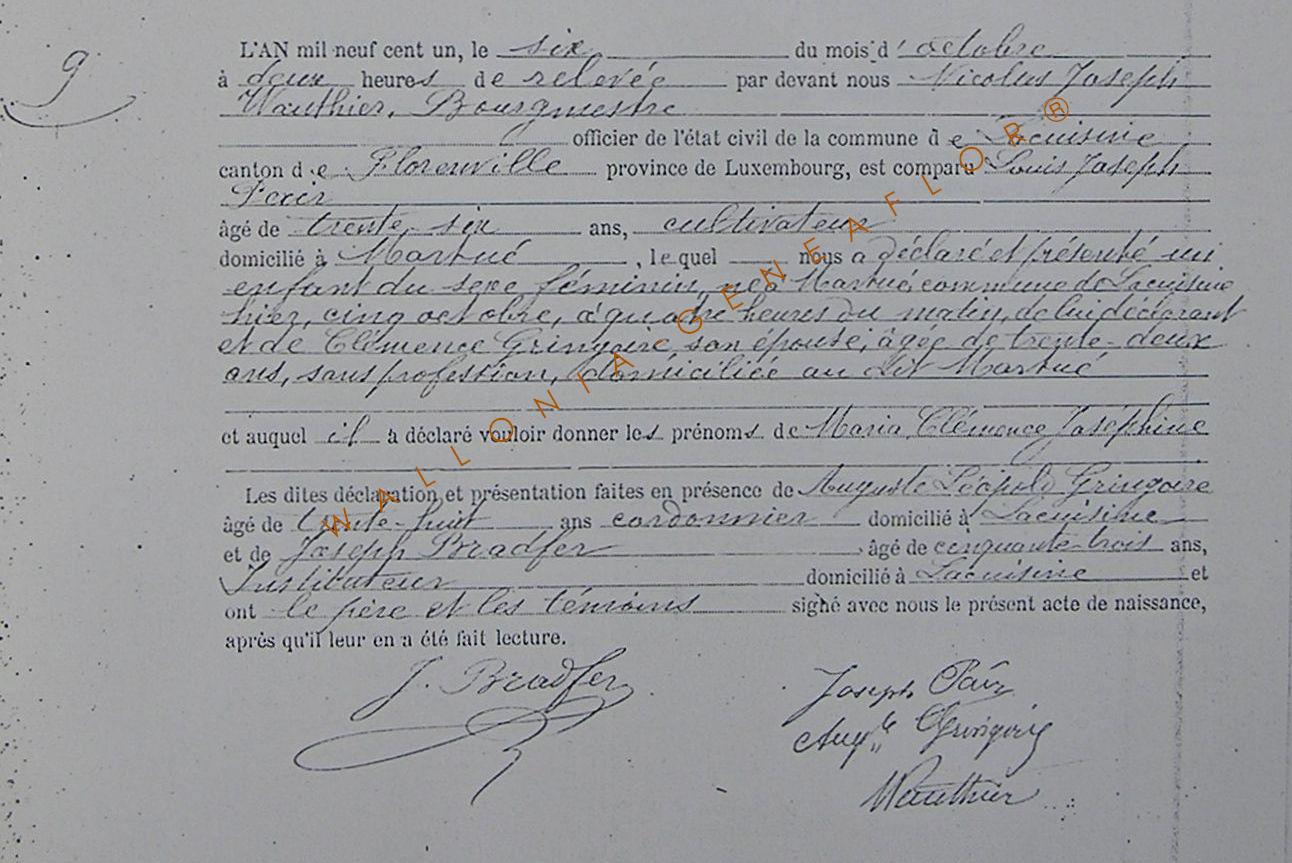 9
L'AN mil neuf cent un, le six du mois d' octobre
à deux heures de relevée par devant nous Nicolas Joseph
Wauthier, Bourgmestre
officier de l'état civil de la commune de Lacuisine
canton de Florenville province de Luxembourg, est comparu Louis Joseph
âgé de trente-six ans, cultivateur
domicilié à Martué, le quel nous a déclaré et présenté un
enfant du sexe féminin, né à Martué, commune de Lacuisine
hier, cinq octobre, à quatre heures du matin, de lui déclarant
et de Clémence Gringoire, son épouse, âgée de trente-deux
ans, sans profession, domiciliée au dit Martué
et auquel il à déclaré vouloir donner les prénoms de Maria Clémence Joséphine
Les dites déclaration et présentation faites en présence de Auguste Léopold Gringoire
âgé de trente-huit ans cordonnier domicilié à Lacuisine
et de Joseph Bradfer, âgé de cinquante-trois ans,
Instituteur domicilié à Lacuisine et
ont le père et les témoins signé avec nous le présent acte de naissance,
après qu'il leur en a été fait lecture.
J. Bradfer
Joseph
Augte Gringoire
Wauthier
WALLONIA GENEAFLOR®